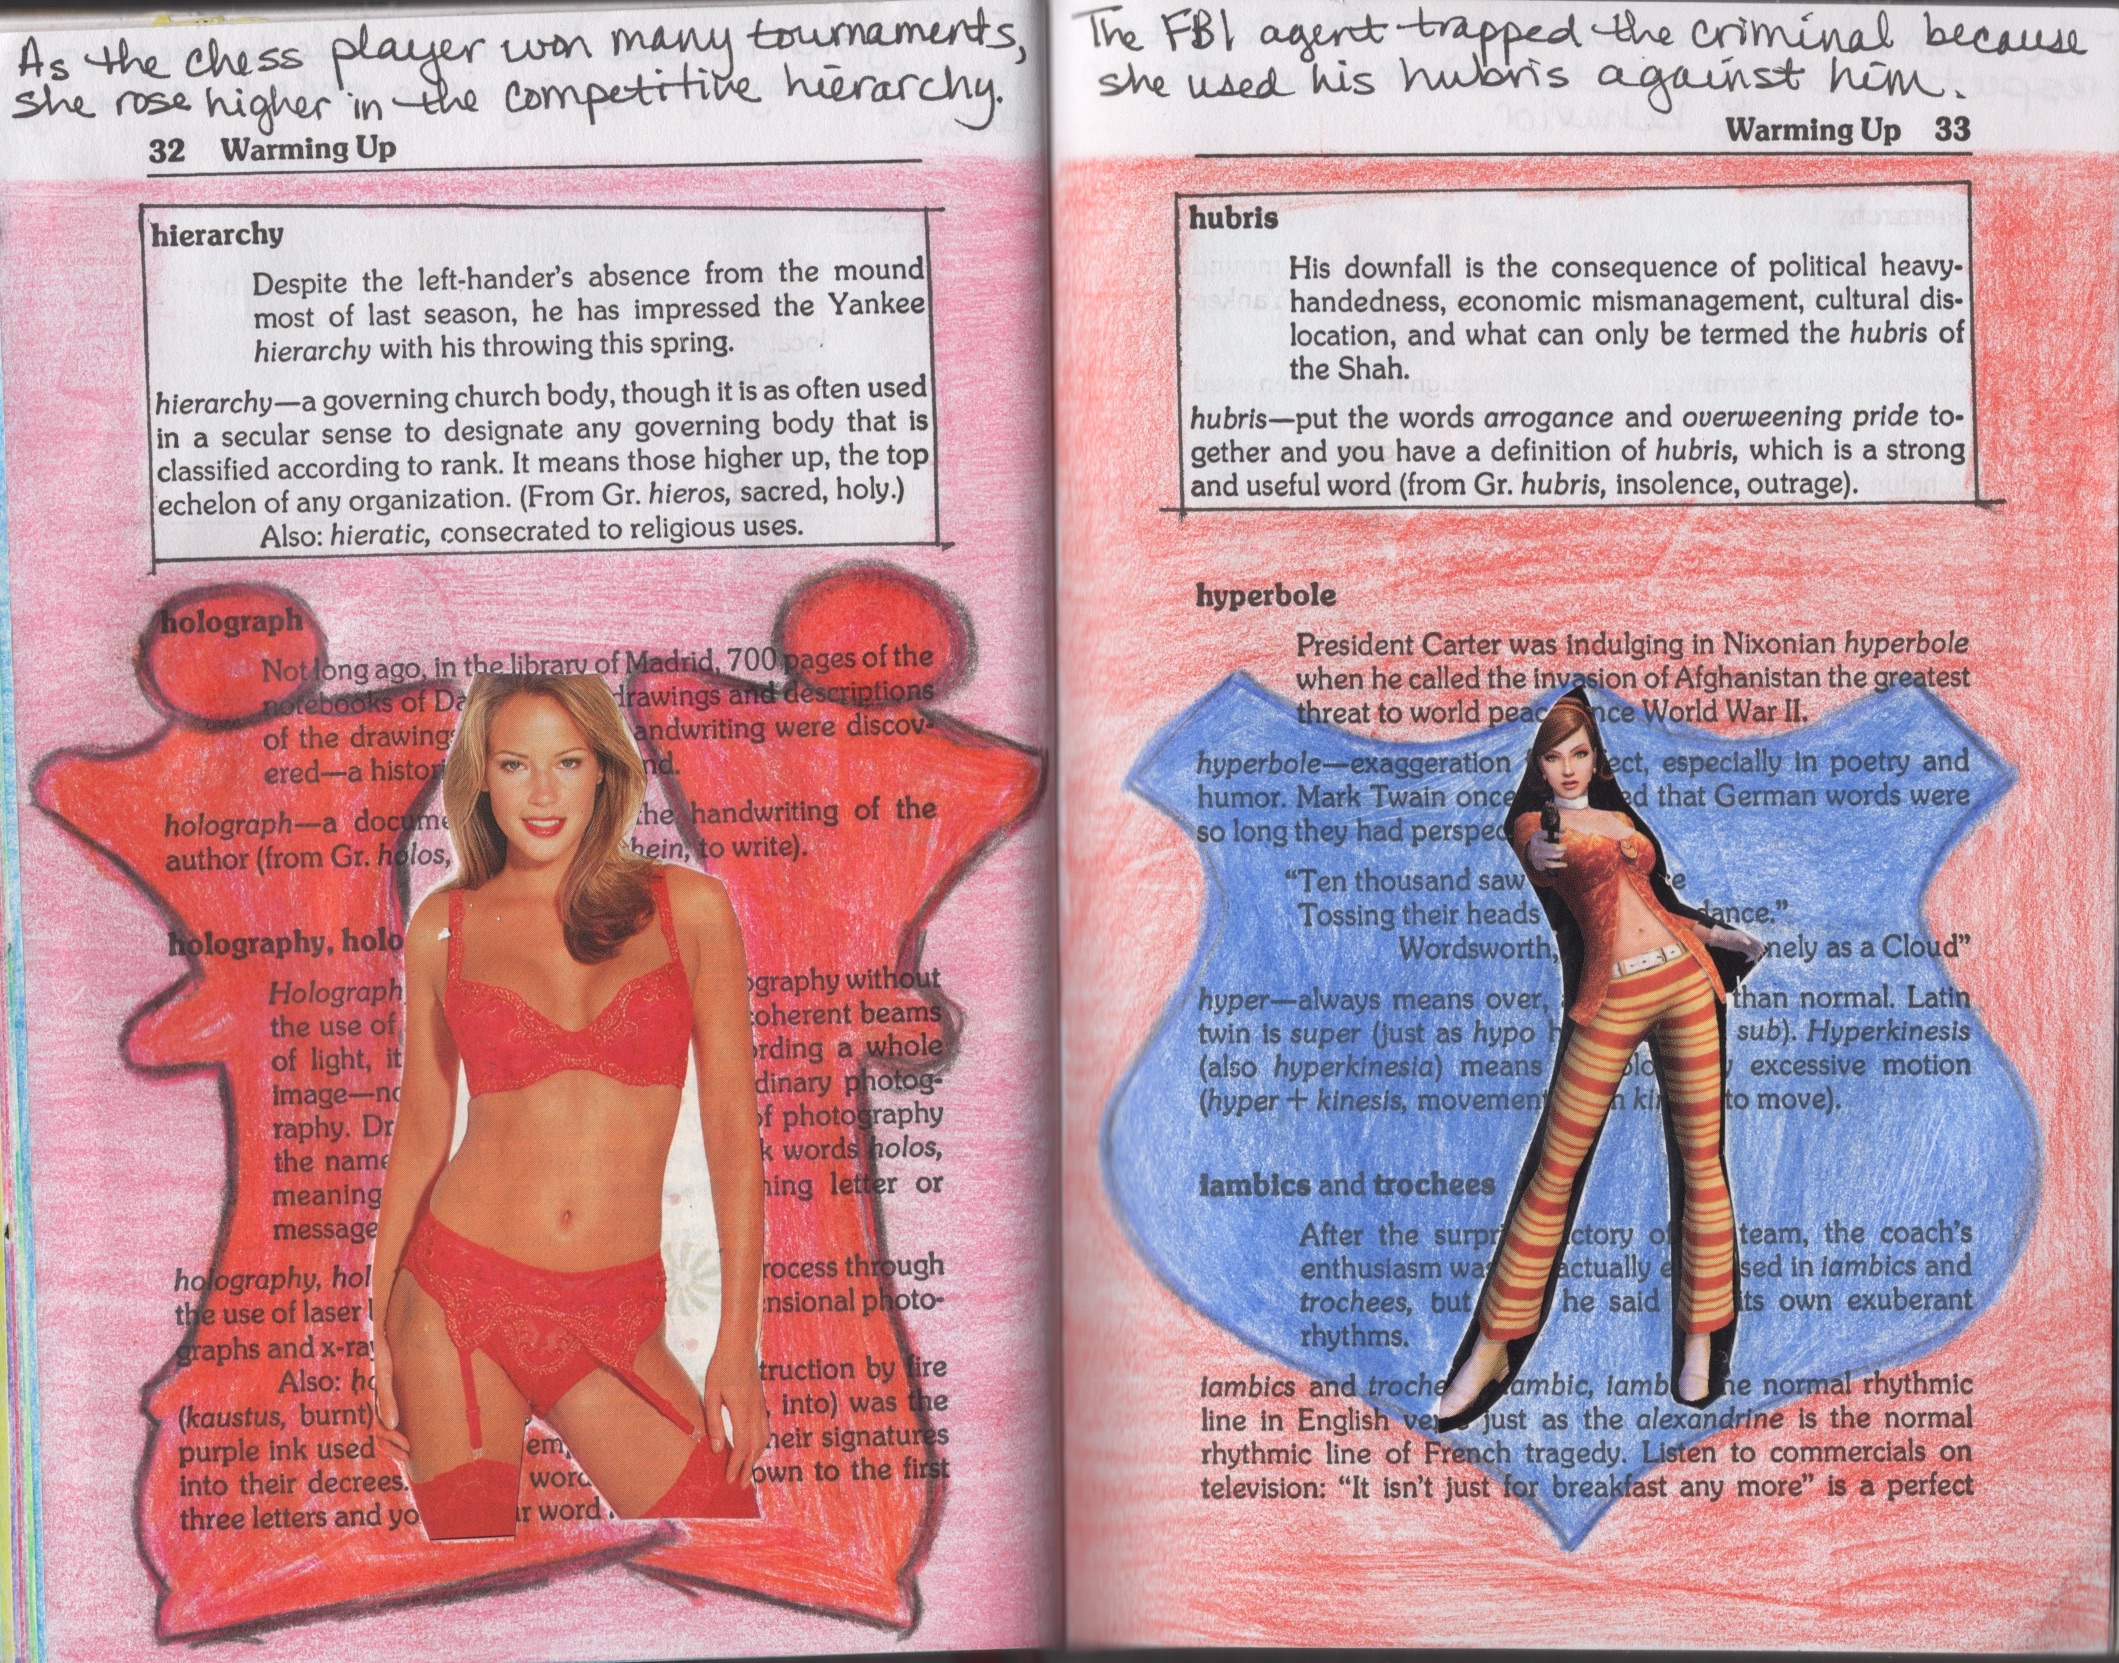 As the chess player won many tournaments,
she rose higher in the competitive hierarchy.
32 Warming Up
hierarchy
Despite the left-hander's absence from the mound
most of last season, he has impressed the Yankee
hierarchy with his throwing this spring.
hierarchy—a governing church body, though it is as often used
in a secular sense to designate any governing body that is
classified according to rank. It means those higher up, the top
echelon of any organization. (From Gr. hieros, sacred, holy.)
Also: hieratic, consecrated to religious uses.
holograph
Not long ago, in the library of Madrid, 700 pages of the
notebooks of Da drawings and descriptions
of the drawing andwriting were discov-
ered—a histori nd.
holograph—a docume the handwriting of the
author (from Gr. holos, hein, to write).
holography, holo
Holograph ography without
the use of coherent beams
of light, it ording a whole
image—no dinary photog-
raphy. Dr of photography
the name k words holos,
meaning ning letter or
message
holography, hol rocess through
the use of laser nsional photo-
graphs and x-ray
Also: ho truction by fire
(kaustus, burnt) into) was the
purple ink used em heir signatures
into their decrees. word own to the first
three letters and yo r word
The FBI agent trapped the criminal because
she used his hubris against him.
Warming Up 33
hubris
His downfall is the consequence of political heavy-
handedness, economic mismanagement, cultural dis-
location, and what can only be termed the hubris of
the Shah.
hubris—put the words arrogance and overweening pride to-
gether and you have a definition of hubris, which is a strong
and useful word (from Gr. hubris, insolence, outrage).
hyperbole
President Carter was indulging in Nixonian hyperbole
when he called the invasion of Afghanistan the greatest
threat to world peac nce World War II.
hyperbole—exaggeration ect, especially in poetry and
humor. Mark Twain once ed that German words were
so long they had perspec
"Ten thousand saw ce
Tossing their heads dance."
Wordsworth, nely as a Cloud"
hyper—always means over, than normal. Latin
twin is super (just as hypo sub). Hyperkinesis
(also hyperkinesia) means excessive motion
(hyper + kinesis, movement ki to move).
iambics and trochees
After the surpri ctory of team, the coach's
enthusiasm was actually e sed in iambics and
trochees, but he said its own exuberant
rhythms.
iambics and troche iambic, iamb he normal rhythmic
line in English ve just as the alexandrine is the normal
rhythmic line of French tragedy. Listen to commercials on
television: "It isn't just for breakfast any more" is a perfect